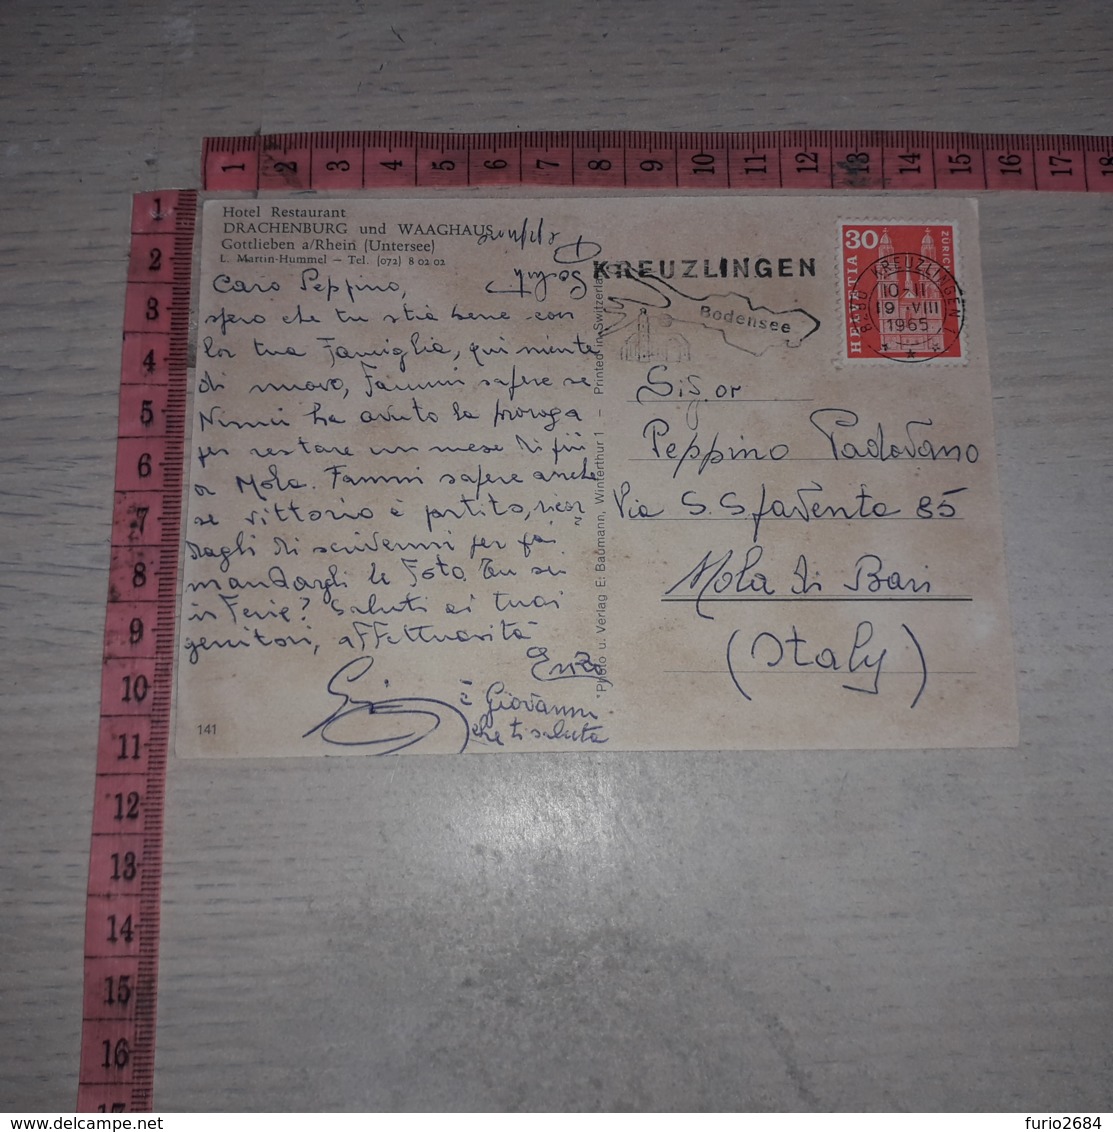 1 2 3 4 5 6 7 8 9 10 11 12 13 14 15 16 17 18
1
2
3
4
5
6
7
8
9
10
11
12
13
14
15
16
17
Hotel Restaurant
DRACHENBURG und WAAGHAUS
Gottlieben a/Rhein (Untersee)
L. Martin-Hummel – Tel. (072) 8 02 02
Caro Peppino,
spero che tu stia bene con
la tua Famiglia, qui niente
di nuovo, Fammi sapere se
Ninuci ha avuto la proroga
per restare un mese di più
a Mola. Fammi sapere anche
se Vittorio è partito, ricor
dagli di scrivermi per
mandargli le Foto. Tu sei
in Ferie? Saluti ai tuoi
genitori, affettuosità
Enzo
è Giovanni
che ti saluta
141
Photo u. Verlag E. Baumann, Winterthur 1 – Printed in Switzerland
KREUZLINGEN
Bodensee
30
HELVETIA
ZÜRICH
8280 KREUZLINGEN 1
10-11
19 VIII
1965
Sig.or
Peppino Padovano
Via S. Spaventa 85
Mola di Bari
(Italy)
delcampe.net
furio2684